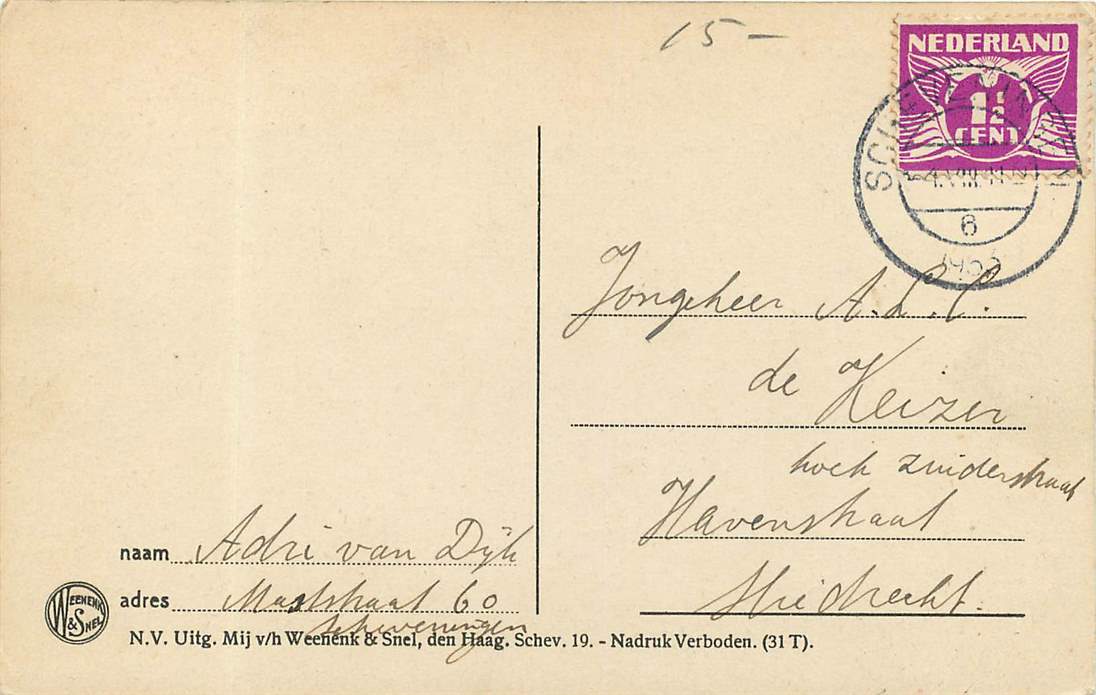 15-
NEDERLAND
1½
CENT
SCHEVENINGEN
6
Jongeheer A.L.C.
de Keizer
hoek Zuiderstraat
Havenstraat
Sliedrecht.
naam Adri van Dijk
adres Maststraat 60
Scheveningen
WEENENK & SNEL
N.V. Uitg. Mij v/h Weenenk & Snel, den Haag. Schev. 19. - Nadruk Verboden. (31 T).